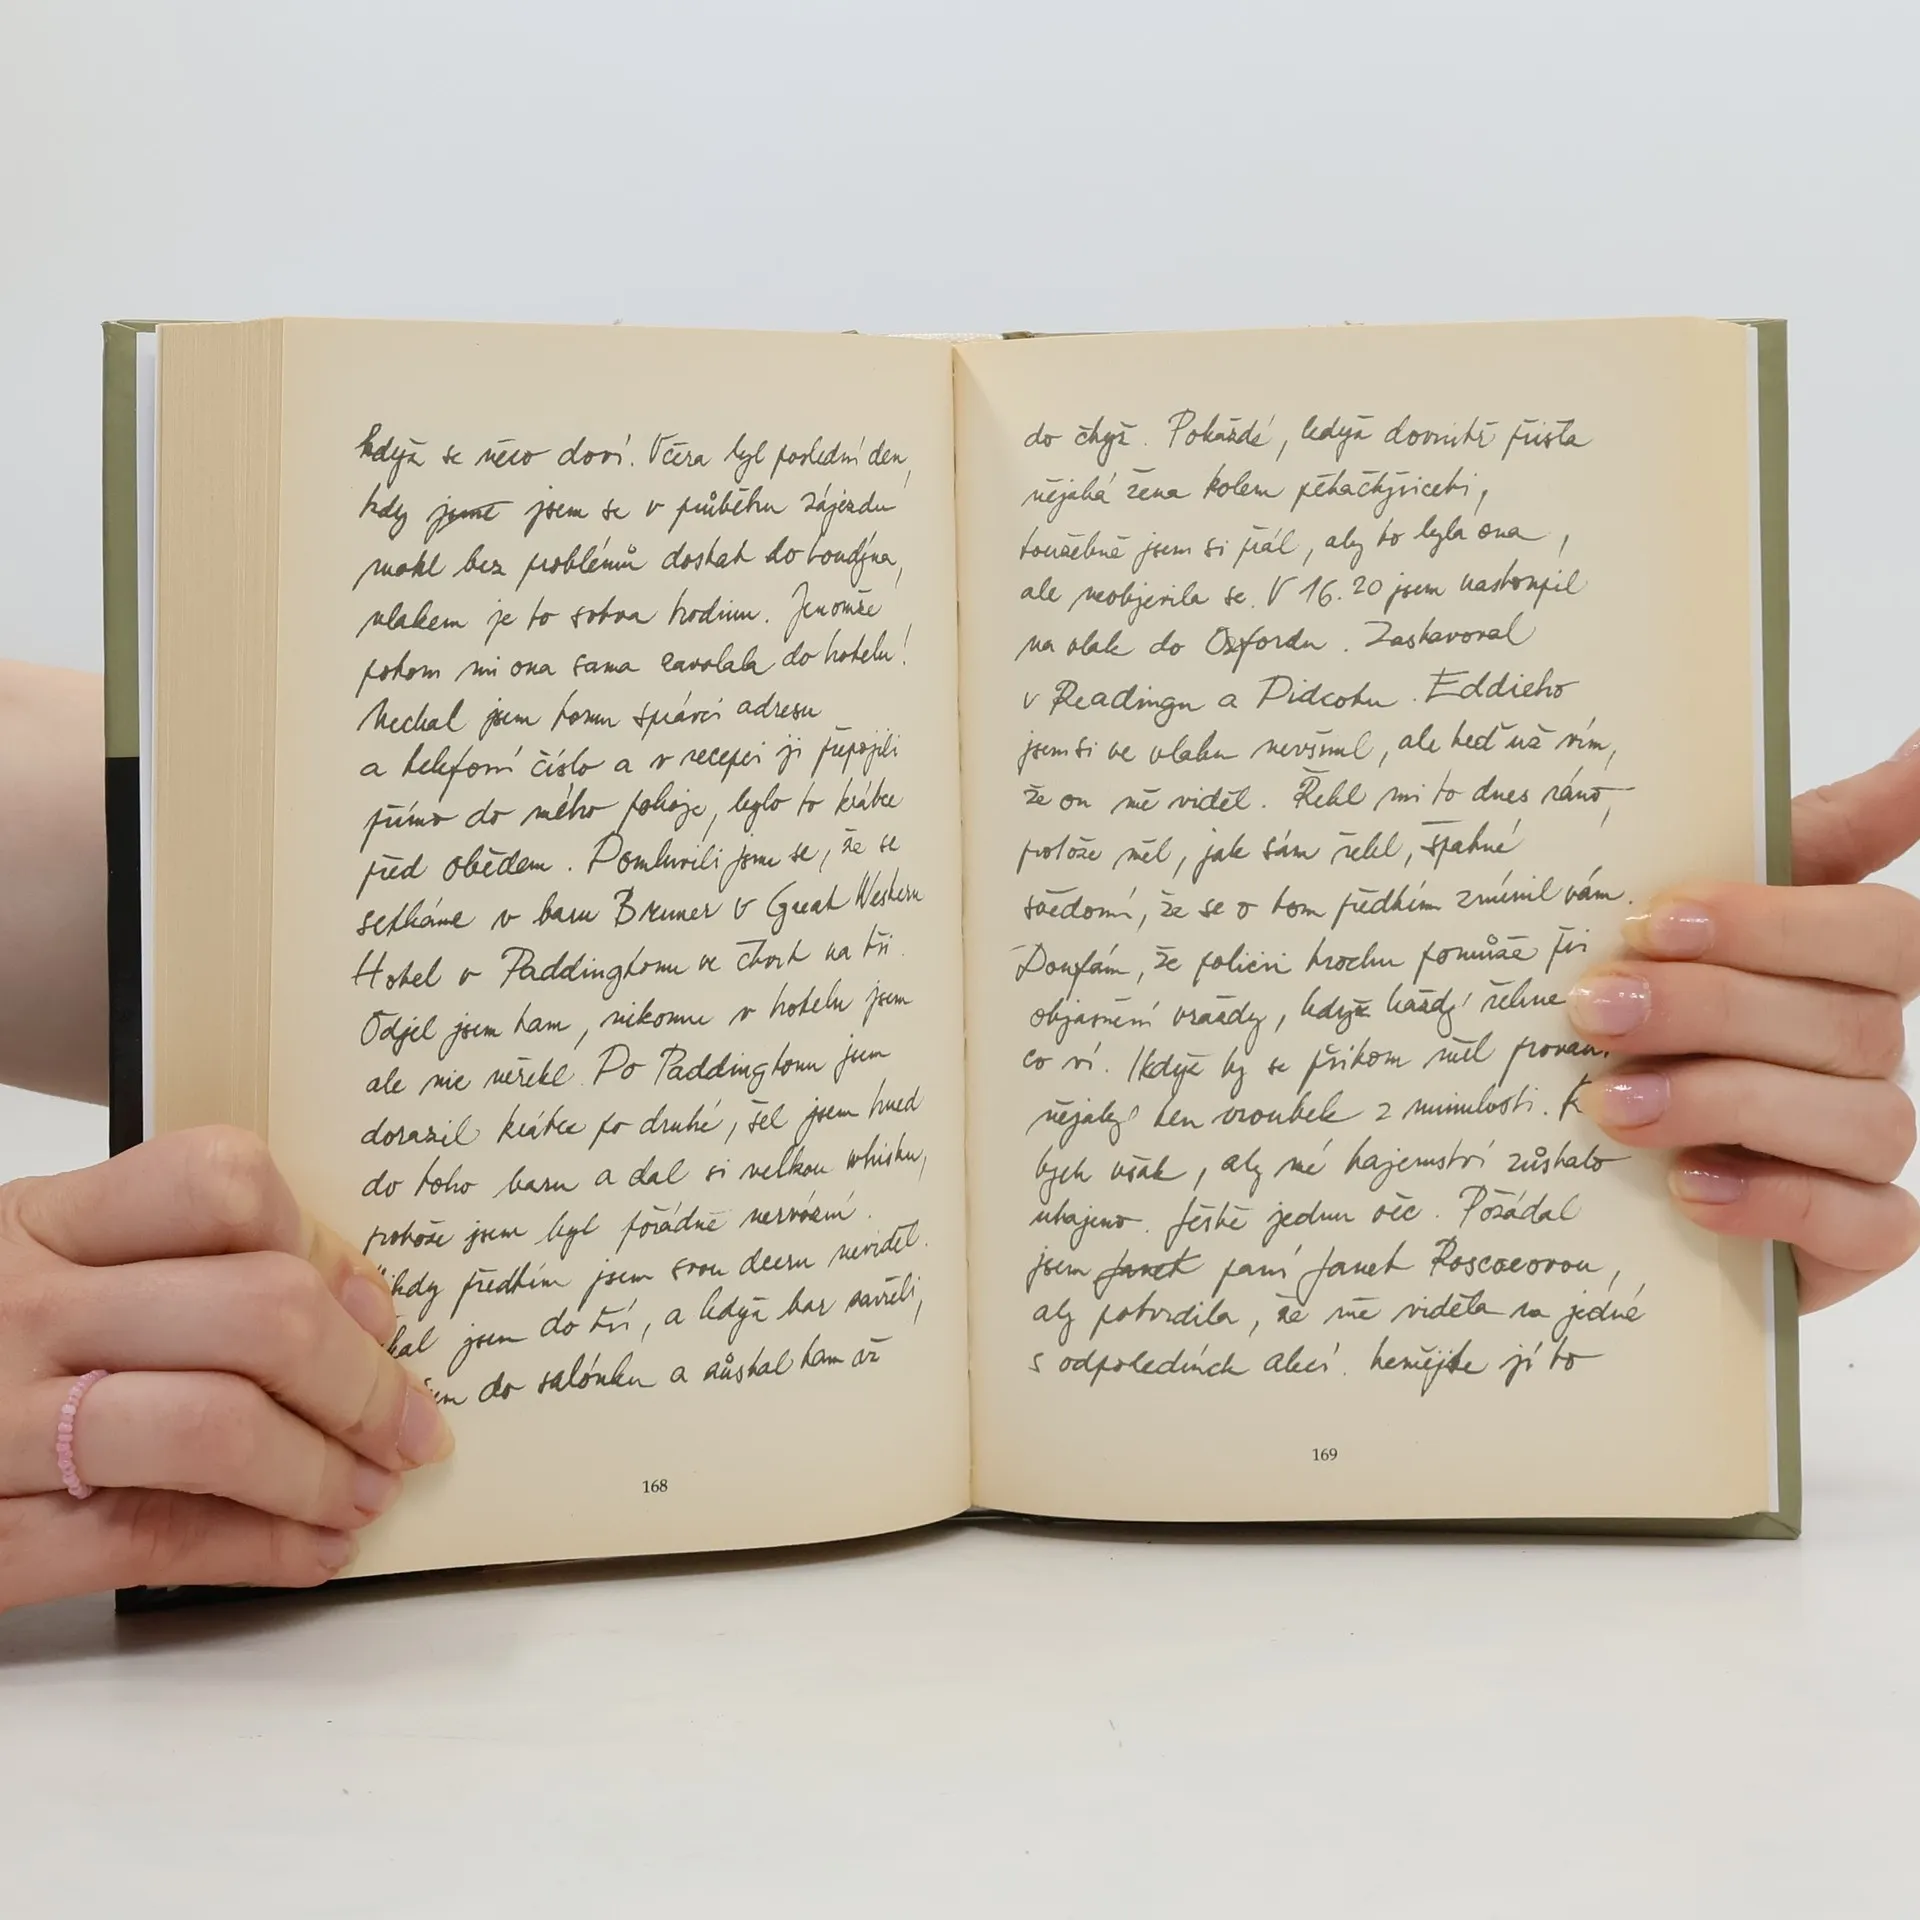 když se něco doví. Včera byl poslední den,
kdy jsme jsem se v průběhu zájezdu
mohl bez problémů dostat do Londýna,
vlakem je to sotva hodinu. Jenomže
potom mi ona sama zavolala do hotelu!
Nechal jsem tomu správci adresu
a telefonní číslo a v recepci ji přepojili
přímo do mého pokoje, bylo to krátce
před obědem. Domluvili jsme se, že se
setkáme v baru Bruner v Great Western
Hotel v Paddingtonu ve čtvrt na tři.
Odjel jsem tam, nikomu v hotelu jsem
ale nic neřekl. Do Paddingtonu jsem
dorazil krátce po druhé, šel jsem hned
do toho baru a dal si velkou whisku,
protože jsem byl pořádně nervózní.
předtím jsem svou dceru neviděl.
jsem do tří, a když bar zavřeli,
do salónku a zůstal tam až
168
do čtyř. Pokaždé, když dovnitř přišla
nějaká žena kolem pětačtyřiceti,
toužebně jsem si přál, aby to byla ona,
ale neobjevila se. V 16.20 jsem nastoupil
na vlak do Oxfordu. Zastavoval
v Readingu a Didcotu. Eddieho
jsem si ve vlaku nevšiml, ale teď už vím,
že on mě viděl. Řekl mi to dnes ráno,
protože měl, jak sám řekl, špatné
svědomí, že se o tom předtím zmínil vám.
Doufám, že policii trochu pomůže při
objasnění vraždy, když každý řekne
co ví. I když by se přitom měl
nějaký ten vroubek z minulosti.
bych však, aby mé tajemství zůstalo
uhajeno. Ještě jednu věc. Požádal
jsem Janet paní Janet Roscoeovou,
aby potvrdila, že mě viděla na jedné
s odpoledních akcí. Nemějte jí to
169